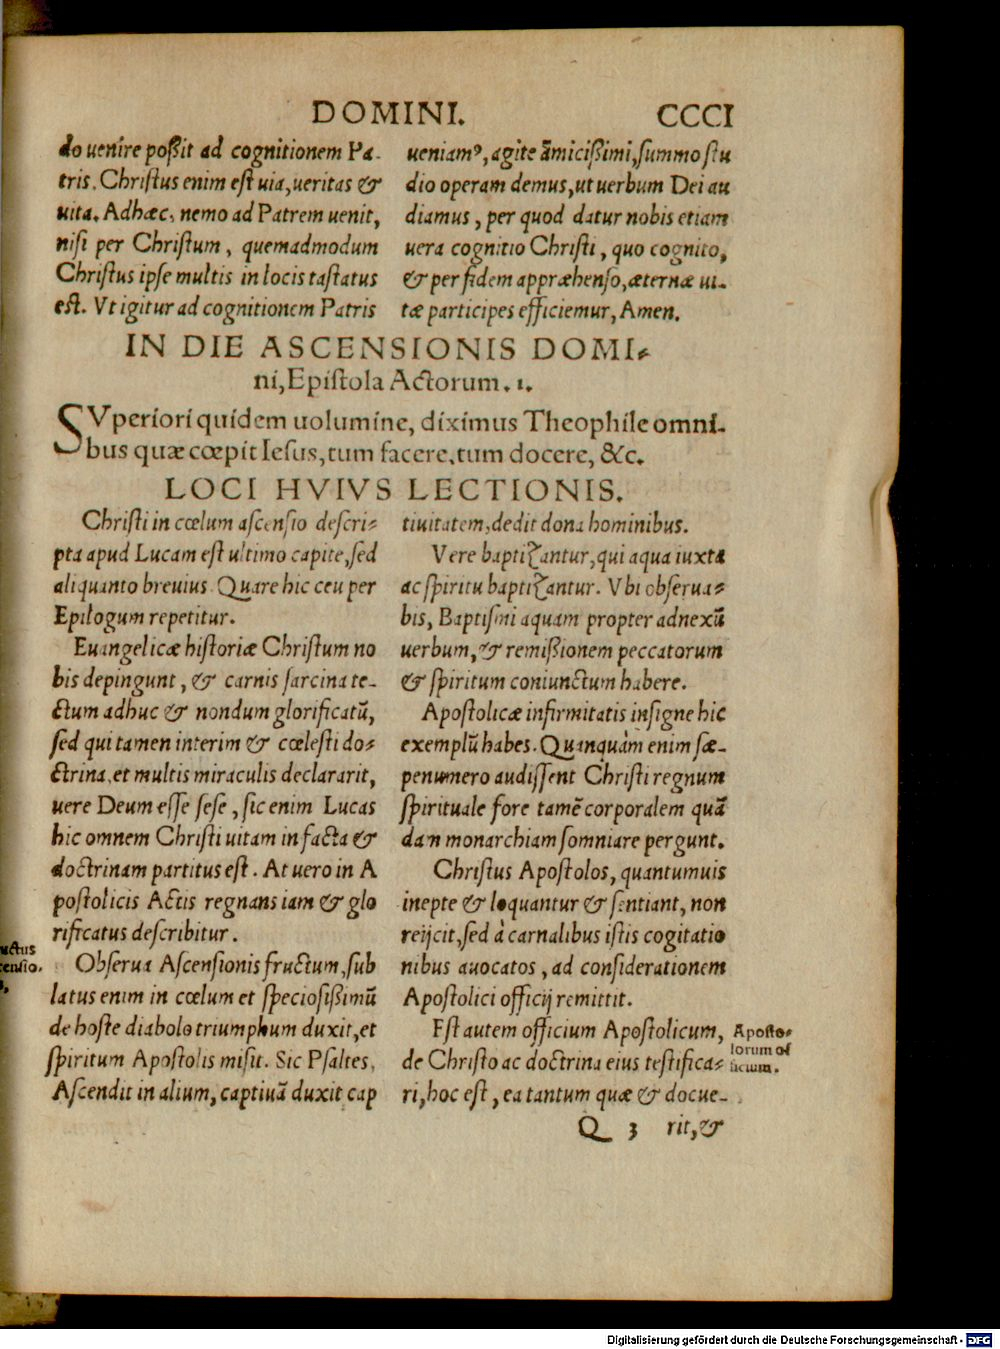 DOMINI. CCCI
do uenire poßit ad cognitionem Pa-
tris. Christus enim est uia, ueritas &
uita. Adhæc, nemo ad Patrem uenit,
nisi per Christum, quemadmodum
Christus ipse multis in locis tastatus
est. Vt igitur ad cognitionem Patris
ueniamꝰ, agite amicißimi, summo stu
dio operam demus, ut uerbum Dei au
diamus, per quod datur nobis etiam
uera cognitio Christi, quo cognito,
& per fidem appræhenso, æternæ ui-
tæ participes efficiemur, Amen.
IN DIE ASCENSIONIS DOMI-
ni, Epistola Actorum. 1.
SVperiori quidem uolumine, diximus Theophile omni-
bus quæ cœpit Iesus, tum facere, tum docere, &c.
LOCI HVIVS LECTIONIS.
Christi in cœlum ascensio descri-
pta apud Lucam est ultimo capite, sed
aliquanto breuius. Quare hic ceu per
Epilogum repetitur.
Euangelicæ historiæ Christum no
bis depingunt, & carnis sarcina te-
ctum adhuc & nondum glorificatū,
sed qui tamen interim & cœlesti do-
ctrina, et multis miraculis declararit,
uere Deum esse sese, sic enim Lucas
hic omnem Christi uitam in facta &
doctrinam partitus est. At uero in A
postolicis Actis regnans iam & glo
rificatus describitur.
uctus
censio.
Obserua Ascensionis fructum, sub
latus enim in cœlum et speciosißimū
de hoste diabolo triumphum duxit, et
spiritum Apostolis misit. Sic Psaltes,
Ascendit in alium, captiuā duxit cap
tiuitatem, dedit dona hominibus.
Vere baptizantur, qui aqua iuxta
ac spiritu baptizantur. Vbi obserua-
bis, Baptismi aquam propter adnexū
uerbum, & remißionem peccatorum
& spiritum coniunctum habere.
Apostolicæ infirmitatis insigne hic
exemplū habes. Quanquàm enim sæ-
penumero audissent Christi regnum
spirituale fore tamē corporalem quā
dan monarchiam somniare pergunt.
Christus Apostolos, quantumuis
inepte & loquantur & sentiant, non
reijcit, sed à carnalibus istis cogitatio
nibus auocatos, ad considerationem
Apostolici officij remittit.
Est autem officium Apostolicum,
de Christo ac doctrina eius testifica-
ri, hoc est, ea tantum quæ & docue-
Aposto-
lorum of
ficium.
Q 3 rit, &
Digitalisierung gefördert durch die Deutsche Forschungsgemeinschaft - DFG